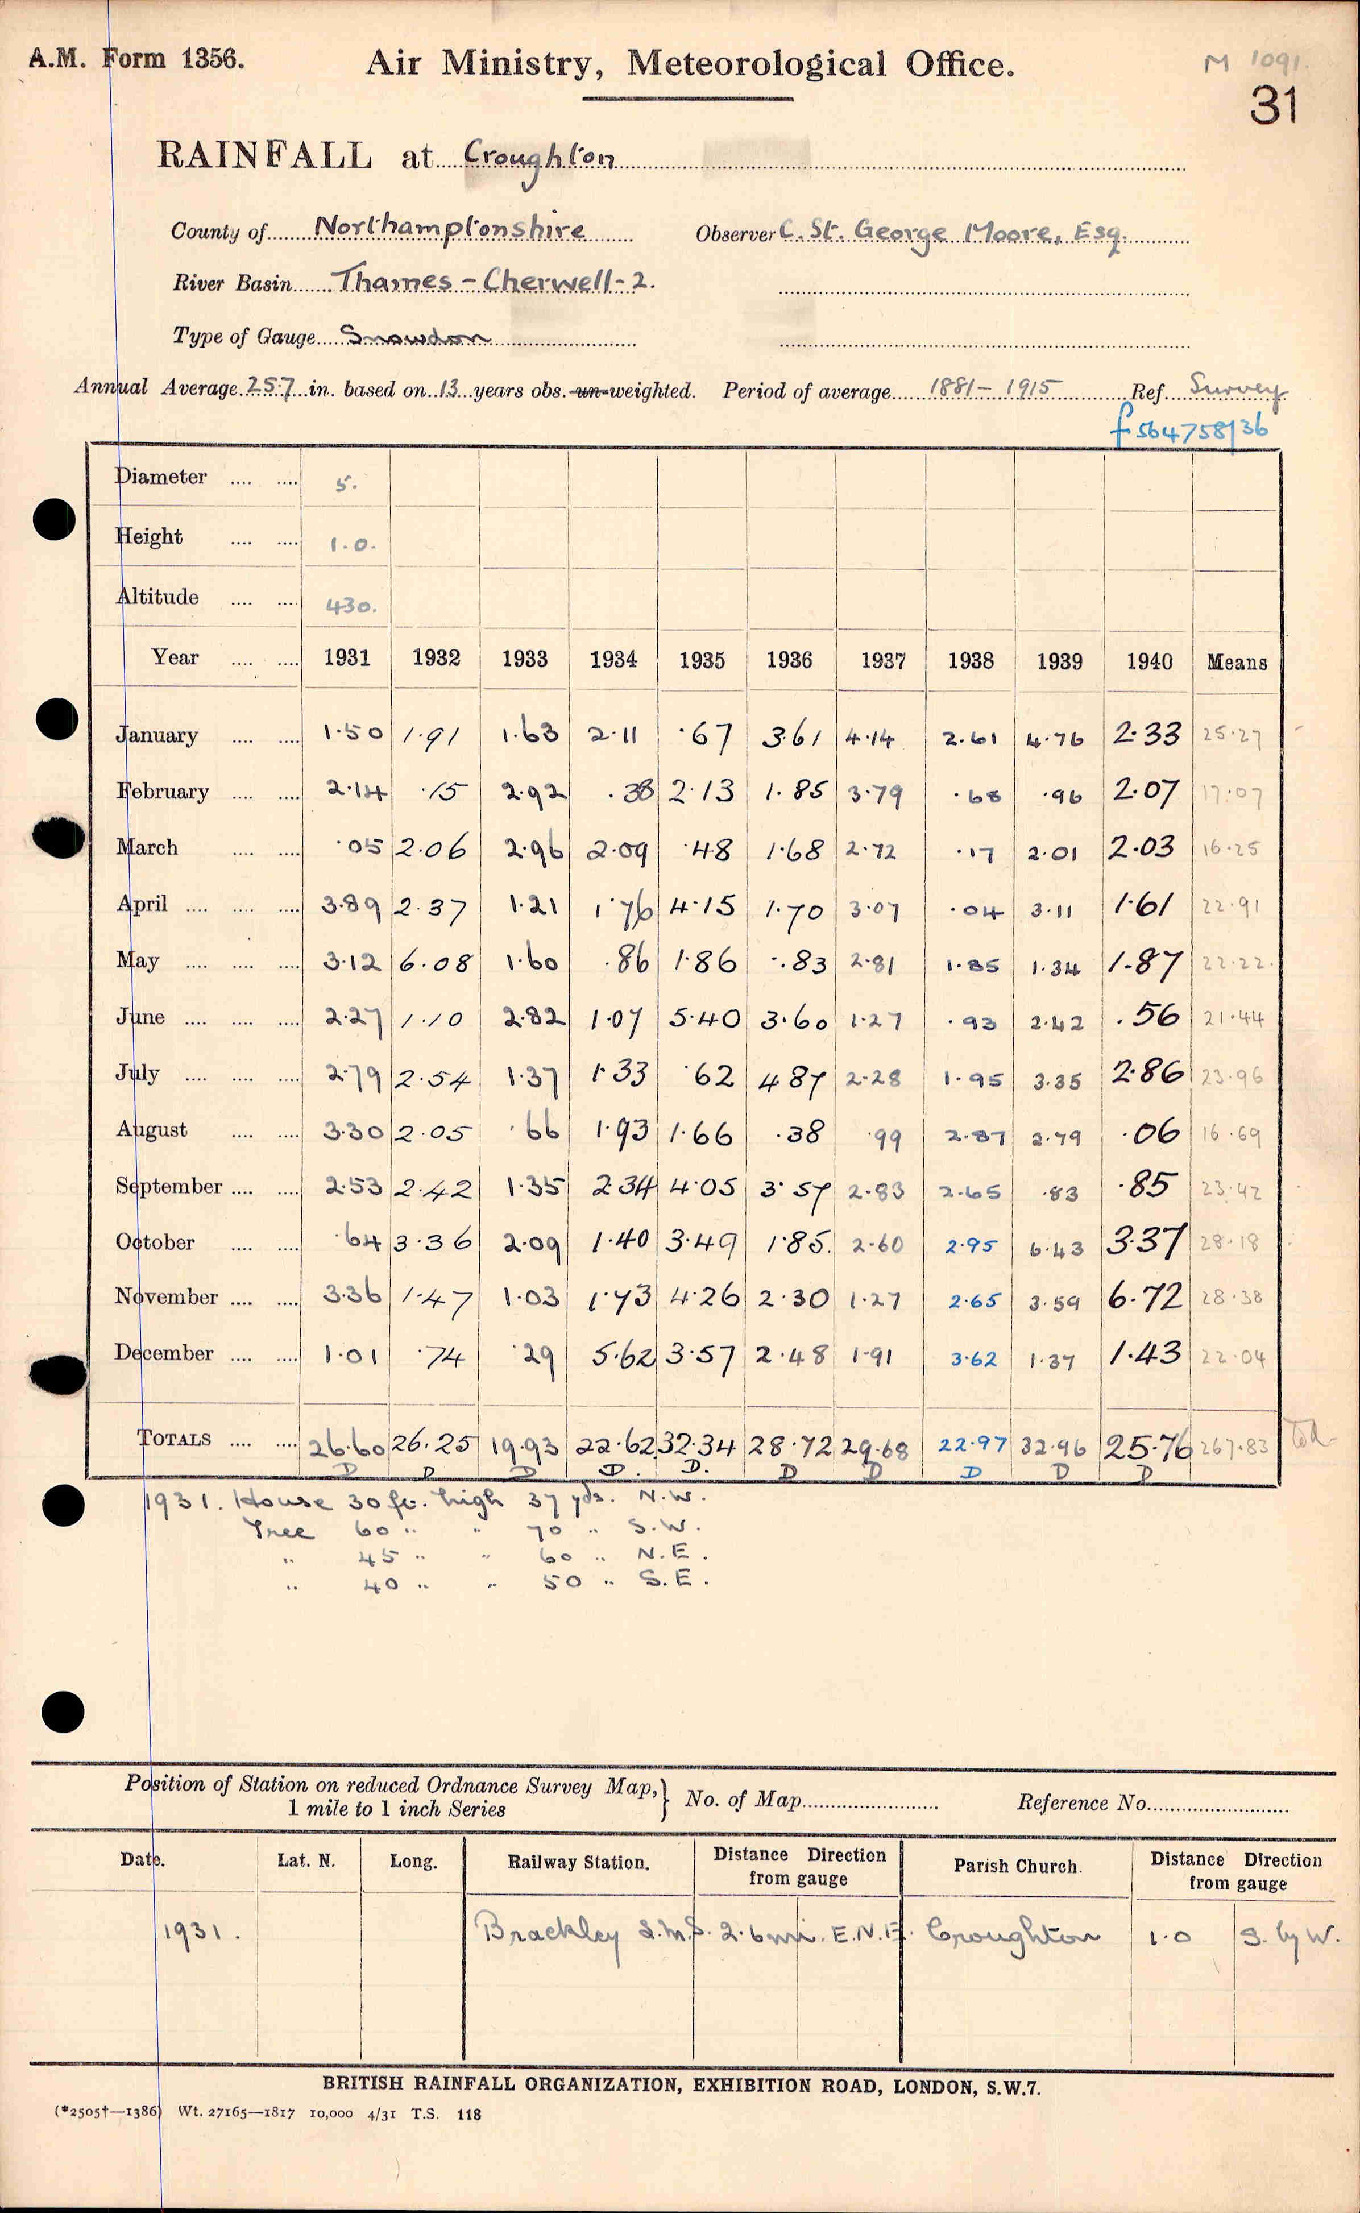 A.M. Form 1356.
Air Ministry, Meteorological Office.
M 1091.
31
RAINFALL at Croughton
County of Northamptonshire Observer C. St. George Moore, Esq.
River Basin Thames - Cherwell - 2.
Type of Gauge Snowdon
Annual Average 25.7 in. based on 13 years obs. un-weighted. Period of average 1881 - 1915 Ref. Survey
f564758/36
Diameter .... .... 5.
Height .... .... 1.0.
Altitude .... .... 430.
Year .... .... 1931 1932 1933 1934 1935 1936 1937 1938 1939 1940 Means
January .... .... 1.50 1.91 1.63 2.11 .67 3.61 4.14 2.61 4.76 2.33 25.27
February .... .... 2.14 .15 2.92 .38 2.13 1.85 3.79 .68 .96 2.07 17.07
March .... .... .05 2.06 2.96 2.09 .48 1.68 2.72 .17 2.01 2.03 16.25
April .... .... .... 3.89 2.37 1.21 1.76 4.15 1.70 3.07 .04 3.11 1.61 22.91
May .... .... .... 3.12 6.08 1.60 .86 1.86 .83 2.81 1.85 1.34 1.87 22.22
June .... .... .... 2.27 1.10 2.82 1.07 5.40 3.60 1.27 .93 2.42 .56 21.44
July .... .... .... 2.79 2.54 1.37 1.33 .62 4.87 2.28 1.95 3.35 2.86 23.96
August .... .... 3.30 2.05 .66 1.93 1.66 .38 .99 2.87 2.79 .06 16.69
September .... .... 2.53 2.42 1.35 2.34 4.05 3.57 2.83 2.65 .83 .85 23.42
October .... .... .64 3.36 2.09 1.40 3.49 1.85. 2.60 2.95 6.43 3.37 28.18
November .... .... 3.36 1.47 1.03 1.73 4.26 2.30 1.27 2.65 3.59 6.72 28.38
December .... .... 1.01 .74 .29 5.62 3.57 2.48 1.91 3.62 1.37 1.43 22.04
TOTALS .... .... 26.60 26.25 19.93 22.62 32.34 28.72 29.68 22.97 32.96 25.76 267.83
D D D D. D. D D D D D
1931. House 30 ft. high 37 yds. N.W.
Tree 60 " " 70 " S.W.
" 45 " " 60 " N.E.
" 40 " " 50 " S.E.
Position of Station on reduced Ordnance Survey Map, } No. of Map Reference No.
1 mile to 1 inch Series
Date. Lat. N. Long. Railway Station. Distance Direction from gauge Parish Church. Distance Direction from gauge
1931. Brackley L.M.S. 2.6 mi. E.N.E. Croughton 1.0 S. by W.
BRITISH RAINFALL ORGANIZATION, EXHIBITION ROAD, LONDON, S.W.7.
(*2505†—1386) Wt. 27165—1817 10,000 4/31 T.S. 118